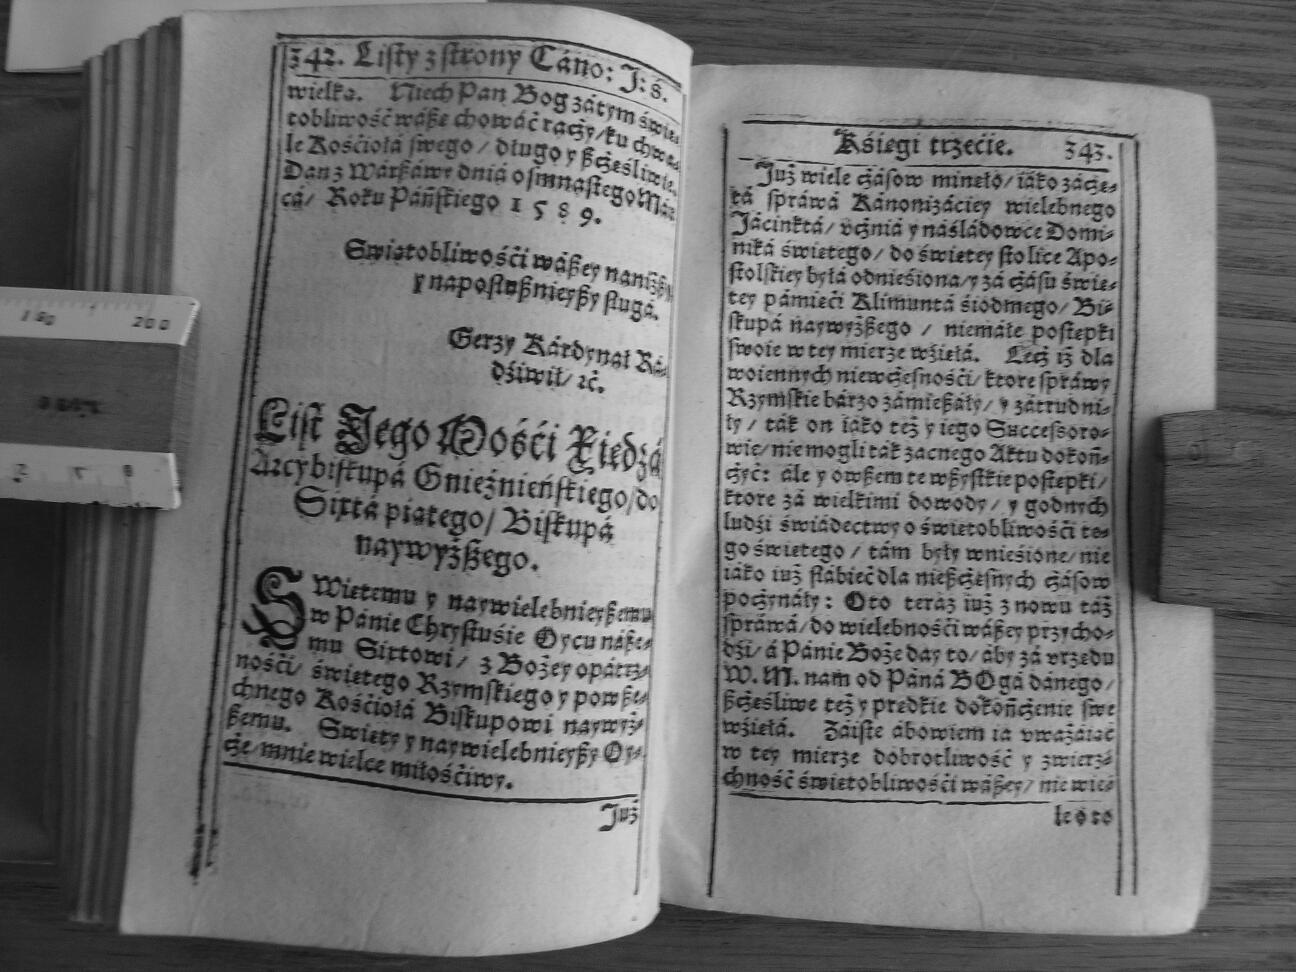 342. Listy z strony Cáno: J: S.
wielka. Niech Pan Bog zátym świe-
tobliwość wáße chowáć raczy/ku chwa-
le Kośćiołá swego / długo y ßczęśliwie.
Dan z Wárßáwy dniá osmnastego Már-
cá/ Roku Páńskiego 1589.
Swiętobliwośći wáßey naniżßy
y naposłußnieyßy sługá.
Gerzy Kárdynał Rá-
dźiwił/ ꝛć.
List Jego Mośći Xiędzá
Arcybiskupá Gnieźnieńskiego/do
Sixtá piątego/ Biskupá
naywyżßego.
SWiętemu y naywielebnieyßemu
w Pánie Chrystuśie Oycu náße-
mu Sixtowi/ z Bożey opátrz-
nośći/ świętego Rzymskiego y powße-
chnego Kośćiołá Biskupowi naywyż-
ßemu. Swięty y naywielebnieyßy Oy-
cze/mnie wielce miłośćiwy.
Już
Kśięgi trzećie. 343.
Już wiele czásow minęło/ iáko záczę-
tá spráwá Kánonizáciey wielebnego
Jácinktá/ vczniá y náśládowce Domi-
niká świętego/ do świętey stolice Apo-
stolskiey byłá odnieśiona/y zá czásu świę-
tey pámięći Klimuntá śiodmego/ Bi-
skupá naywyżßego / niemáłe postępki
swoie w tey mierze wźięłá. Lecz iż dla
woiennych niewczesnośći/ ktore spráwy
Rzymskie bárzo zámießáły/ y zátrudni-
ły / ták on iáko też y iego Successoro-
wie/ nie mogli ták zacnego Aktu dokoń-
czyć: ále y owßem te wßystkie postępki/
ktore zá wielkimi dowody/ y godnych
ludźi świádectwy o świętobliwośći te-
go świętego / tám były wnieśione/ nie
iáko iuż słábieć dla nießczęsnych czásow
poczynáły: Oto teraz iuż z nowu táż
spráwá/ do wielebnośći wáßey przycho-
dźi/ á Pánie Boże day to/ áby zá vrzędu
W. M. nam od Páná BOgá dánego/
ßczęśliwe też y prędkie dokończenie swe
wźięłá. Záiste ábowiem ia vważáiąc
w tey mierze dobrotliwość y zwierz-
chność świętobliwośći wáßey/ nie wie-